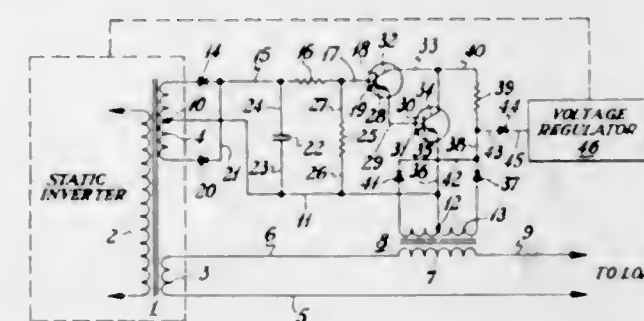 14 15 16 17 18 32 33 40
10 24 27 19 28 30 34 39
4 25 44
VOLTAGE
REGULATOR
46
STATIC
INVERTER
21 22 29 31 35 38 43 45
20 23 26 41 36 42 37
2 11 12 13
6 8 7 9
3 TO LOA
1 5